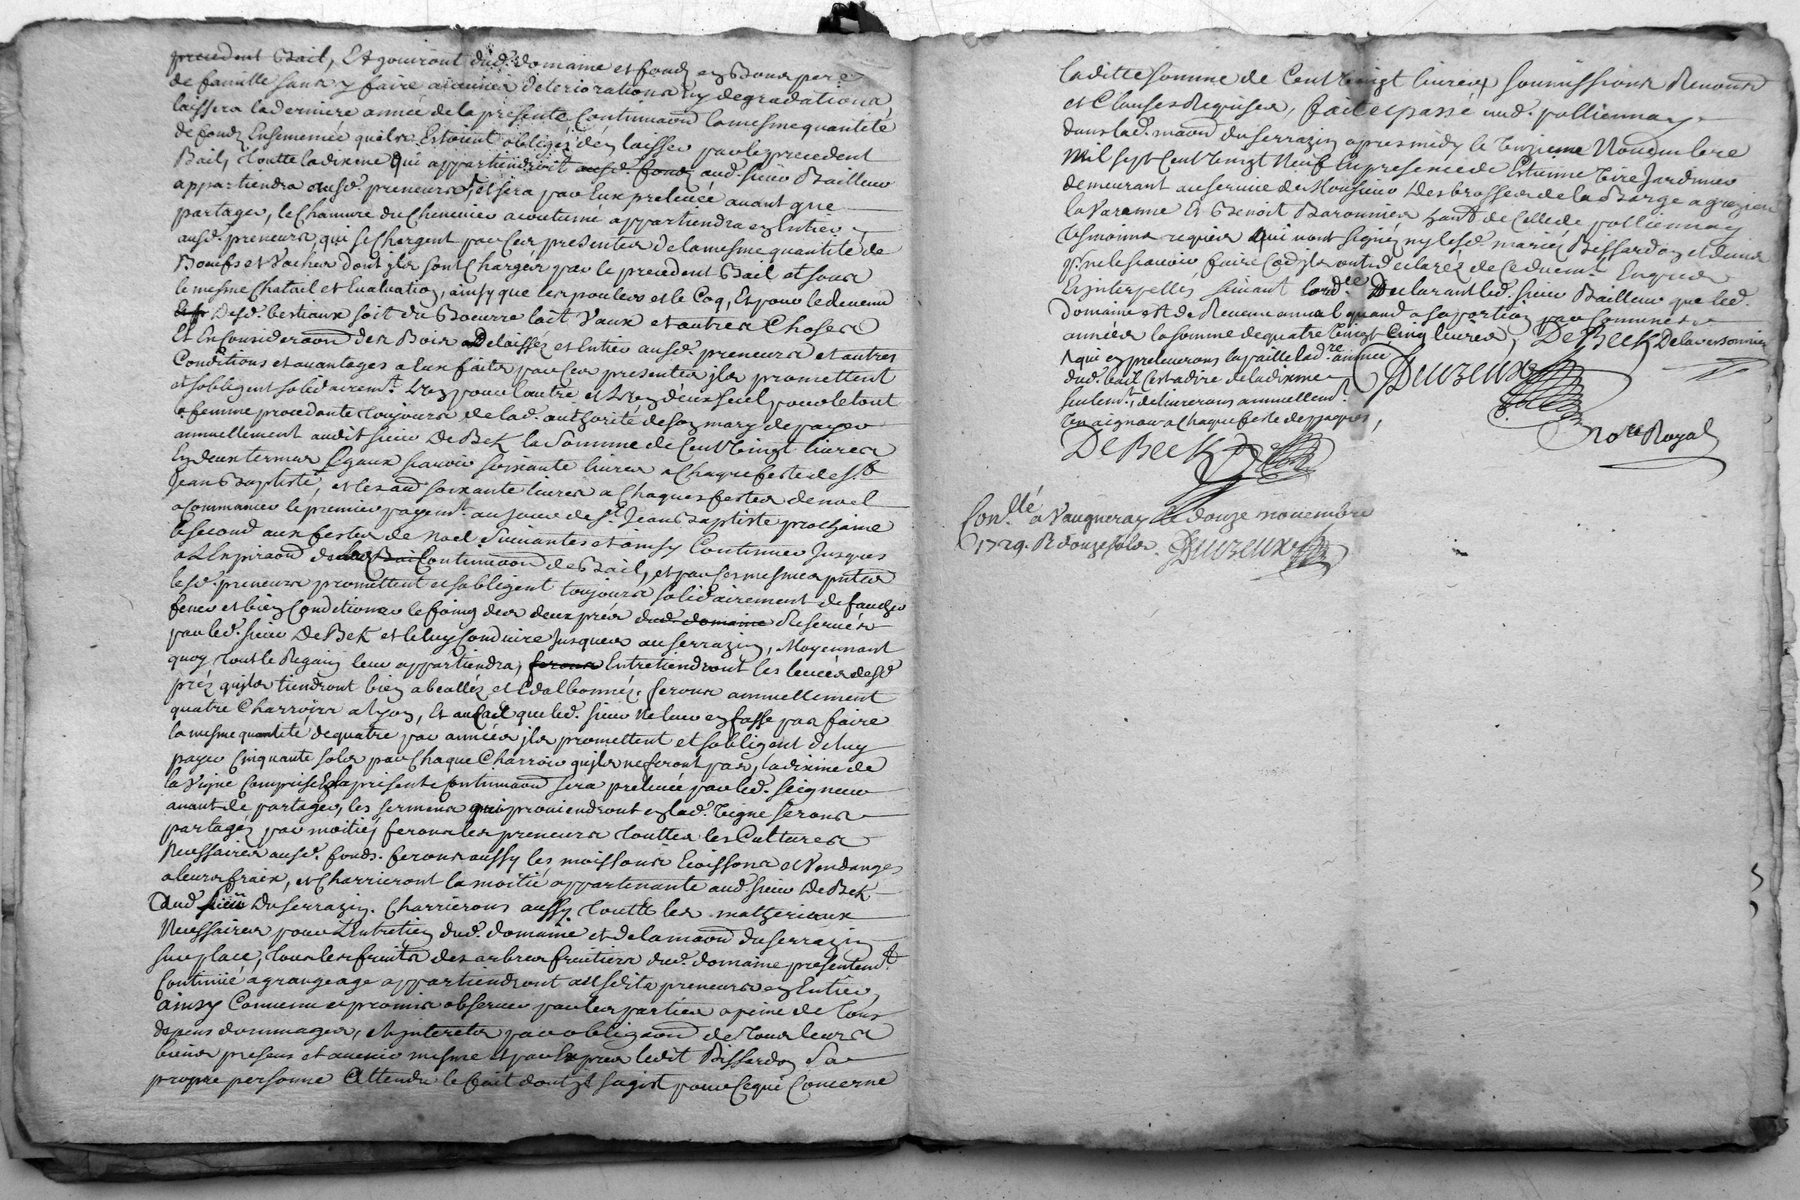 precedent Bail, Et jouiront dud. domaine et fondz en Bons pere
de famille sans y faire aucunes deteriorations ny degradations,
laissera la derniere année de la presente Continuaon la mesme quantité
de fondz Ensemencée quils Estoient obligéz d'en laisser par le precedent
Bail, Toutte la dixme qui appartiendroit aud. sieur Bailleur
appartiendra ausd. preneurs, et sera par Eux prelevée avant que
partager, le Chanvre du Chenevier acoutumé appartiendra en Entier
ausd. preneurs, qui se chargent par Ces presentes de la mesme quantité de
Boeufs et Vaches dont ils sont Chargés par le precedent Bail et sous
le mesme Chatail et Evaluation, ainsy que les poules et le Coq, Et pour le revenu
Desd. bestiaux soit du Beurre lait Vaux et autres Choses
Et En Consideraon des Bois delaissez en Entier ausd. preneurs et autres
Conditions et avantages a Eux faites par Ces presentes ils promettent
et sobligent solidairemt. L'un pour lautre et L'un d'eux seul pour le tout
la femme procedante toujours de lad. authorité de son mary de payer
annuellement audit sieur De Bek la Somme de Cent vingt livres
En deux termes Egaux scavoir soixante livres a Chaque feste de St.
Jean Baptiste, et les au. soixante livres a Chaques festes de noel
a Commancer le premier payemt. au jour de St. Jean Baptiste prochaine
le second aux festes de Noel Suivantes et ainsy Continuer Jusques
a L'Expiraon de la Continuaon de Bail, et par ses mesmes pntes
lesd. preneurs promettent et sobligent toujours solidairement de faucher
fener et bien Conditionner le foing des deux préz Reservés
par led. sieur De Bek et le luy Conduire Jusques au serrazin, Moyennant
quoy tout le Regain leur appartiendra, Entretiendront les levées desd.
préz quils tiendront bien abeallés et Edalbonnés. ferons annuellement
quatre Charrois a lyon, Et au Cas que led. sieur ne leur en fasse pas faire
la mesme quantité de quatre par années ils promettent et sobligent de luy
payer Cinquante sols par Chaque Charroir quils ne feront pas, la dixme de
la Vigne Comprise En la presente Continuaon sera prelevée par led. Seigneur
avant de partager, les serments qui proviendront en lad. Vigne serons
partagés par moitié, ferons les preneurs touttes les Cultures
Necessaires ausd. fonds. ferons aussy les moissons Eoissons et Vendanges
a leurs fraix, et Charrieront la moitié appartenante aud. sieur De Bek
aud. du serrazin. Charrierons aussy toutte les matheriaux
Necessaires pour L'Entretien dud. domaine et de la maon du serrazin
sur place, tous les fruits des arbres fruitiers dud. domaine presentemt.
Continué a grangeage appartiendront ausdits preneurs en Entier,
ainsy Convenu et promis observer par les parties a peine de Tous
depens dommages, et Interets par obligaon de Tous leurs
biens presens et avenir mesme et par Expres ledit Bissardon sa
propre personne Attendu le fait dont s'agist pour Ce qui Concerne
laditte somme de Cent Vingt livres soumissions Renons
et Clauses Requises, fait et passé aud. pollionnay
dans lad. maon du serrazin apres midy le Onzieme Novembre
Mil sept Cent Vingt Neuf En presence de Estienne Jardinier
demeurant au service de Monsieur Desbrosses de la Barge a grezieu
la Varenne Et Benoit Baronnier hant. de Celle de pollionnay
tesmoins requis qui n'ont signéz ny lesd. mariéz Bissardon
pour ne le scavoir faire Co. ils ont declaréz de Ce duemt. Enquis
Et Interpellés suivant lordce. Declarant led. sieur Bailleur que led.
domaine est de Revenu annuel quand a sa portion par Communes
années la somme de quatre Vingt Cinq livres, De Beek Delaversonnier
qui en preleverons la paille lad. re. année
dud. bail Cest a dire de la dixme
seulemt., delivrerons annuellemt.
Un aigneau a Chaque feste de paques,
Deuzeux
De Beek
Nore. Royal
Conllé a Vaugneray le douze novembre
1729. R douze sols. Deuzeux